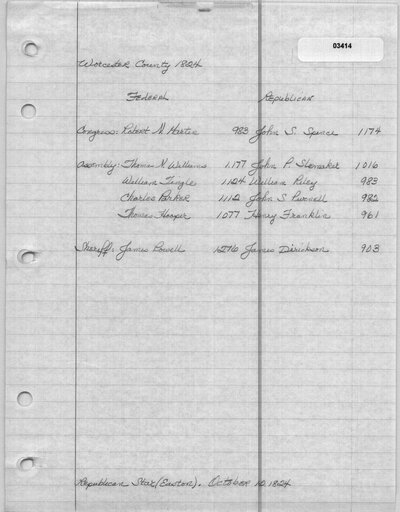 03414
Worcester County 1824
Federal Republican
Congress: Robert N. Martin 983 John S. Spence 1174
Assembly: Thomas N. Williams 1177 John P. Slemaker 1016
William Tingle 1124 William Riley 983
Charles Parker 1112 John S. Purnell 982
Thomas Hooper 1077 Henry Franklin 961
Sheriff: James Powell 1276 James Dirickson 903
Republican Star (Easton). October 12, 1824